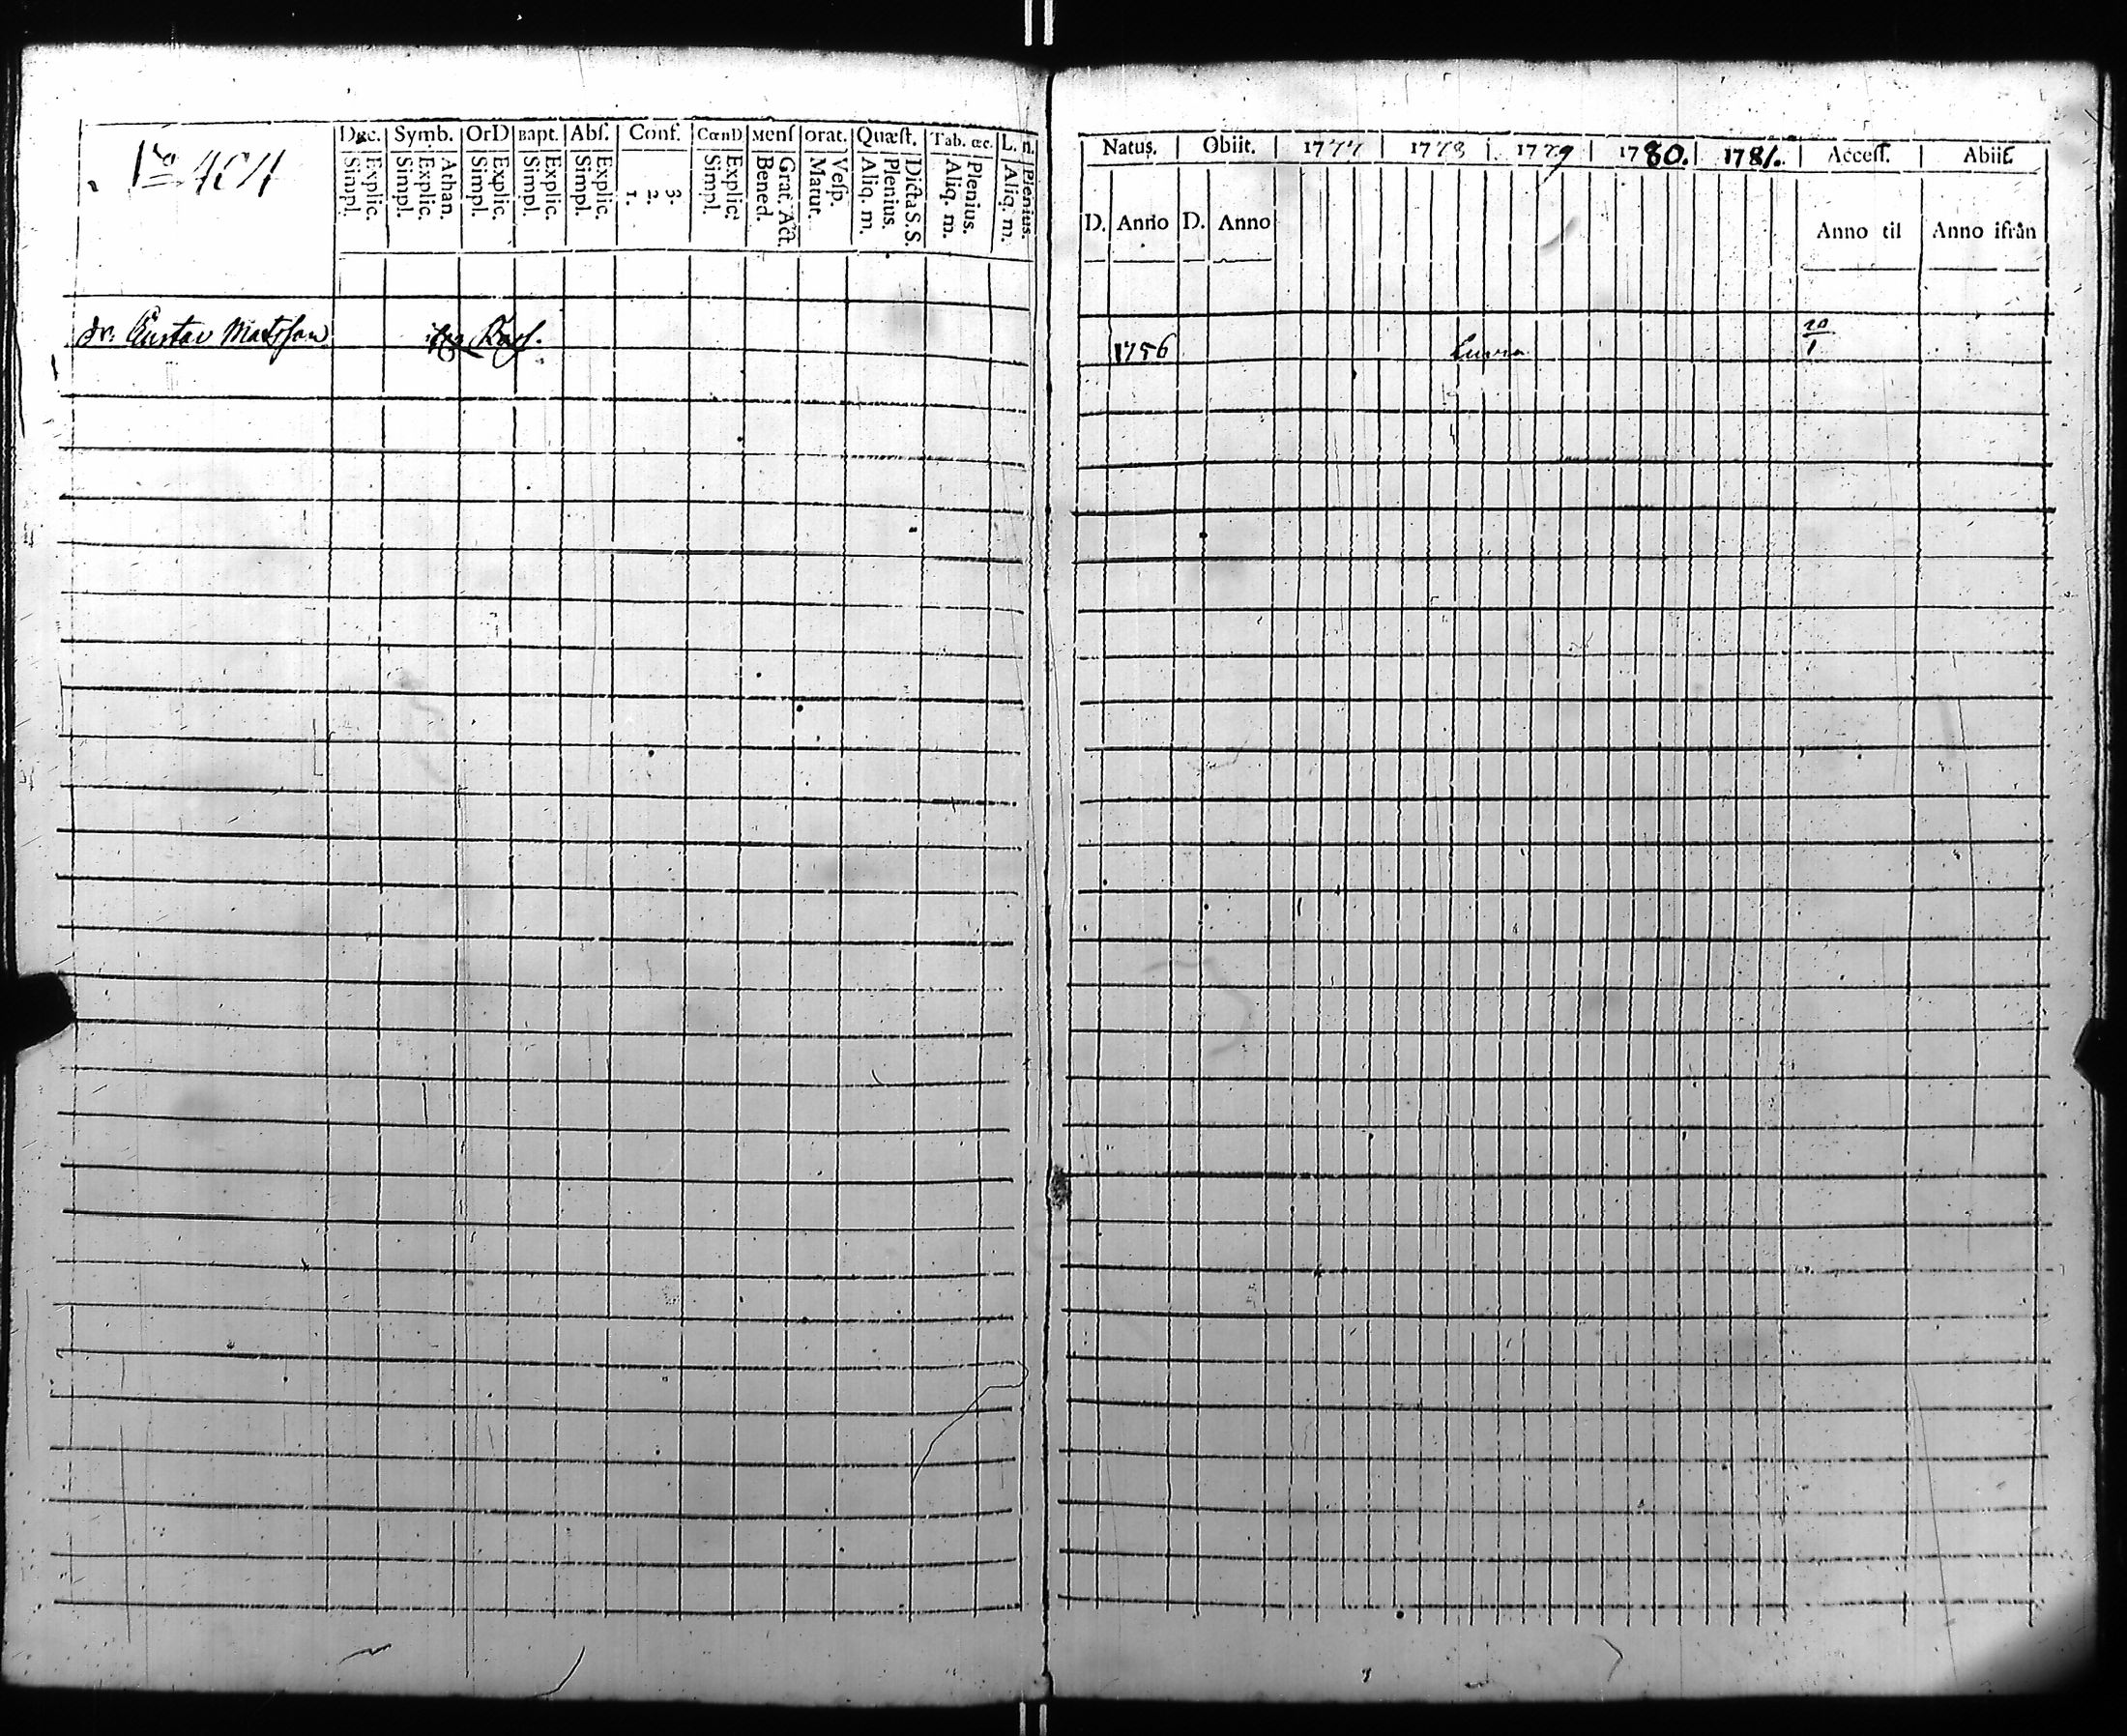 No 404
Dec. Symb. OrD Bapt. Abſ. Conf. CœnD Menſ orat. Quæſt. Tab. œc. L. n.
Simpl. Explic. Simpl. Explic. Athan. Simpl. Explic. Simpl. Explic. Simpl. Explic. 1. 2. 3. Simpl. Explic. Bened. Grat. Act. Matut. Veſp. Aliq. m. Plenius. Dicta S. S. Aliq. m. Plenius. Aliq. m. Plenius.
dr. Gustav Matsson
Natus. Obiit. 1777 1778 1779 1780. 1781. Acceſſ. Abiit.
D. Anno D. Anno Anno til Anno ifrån
1756 20/1